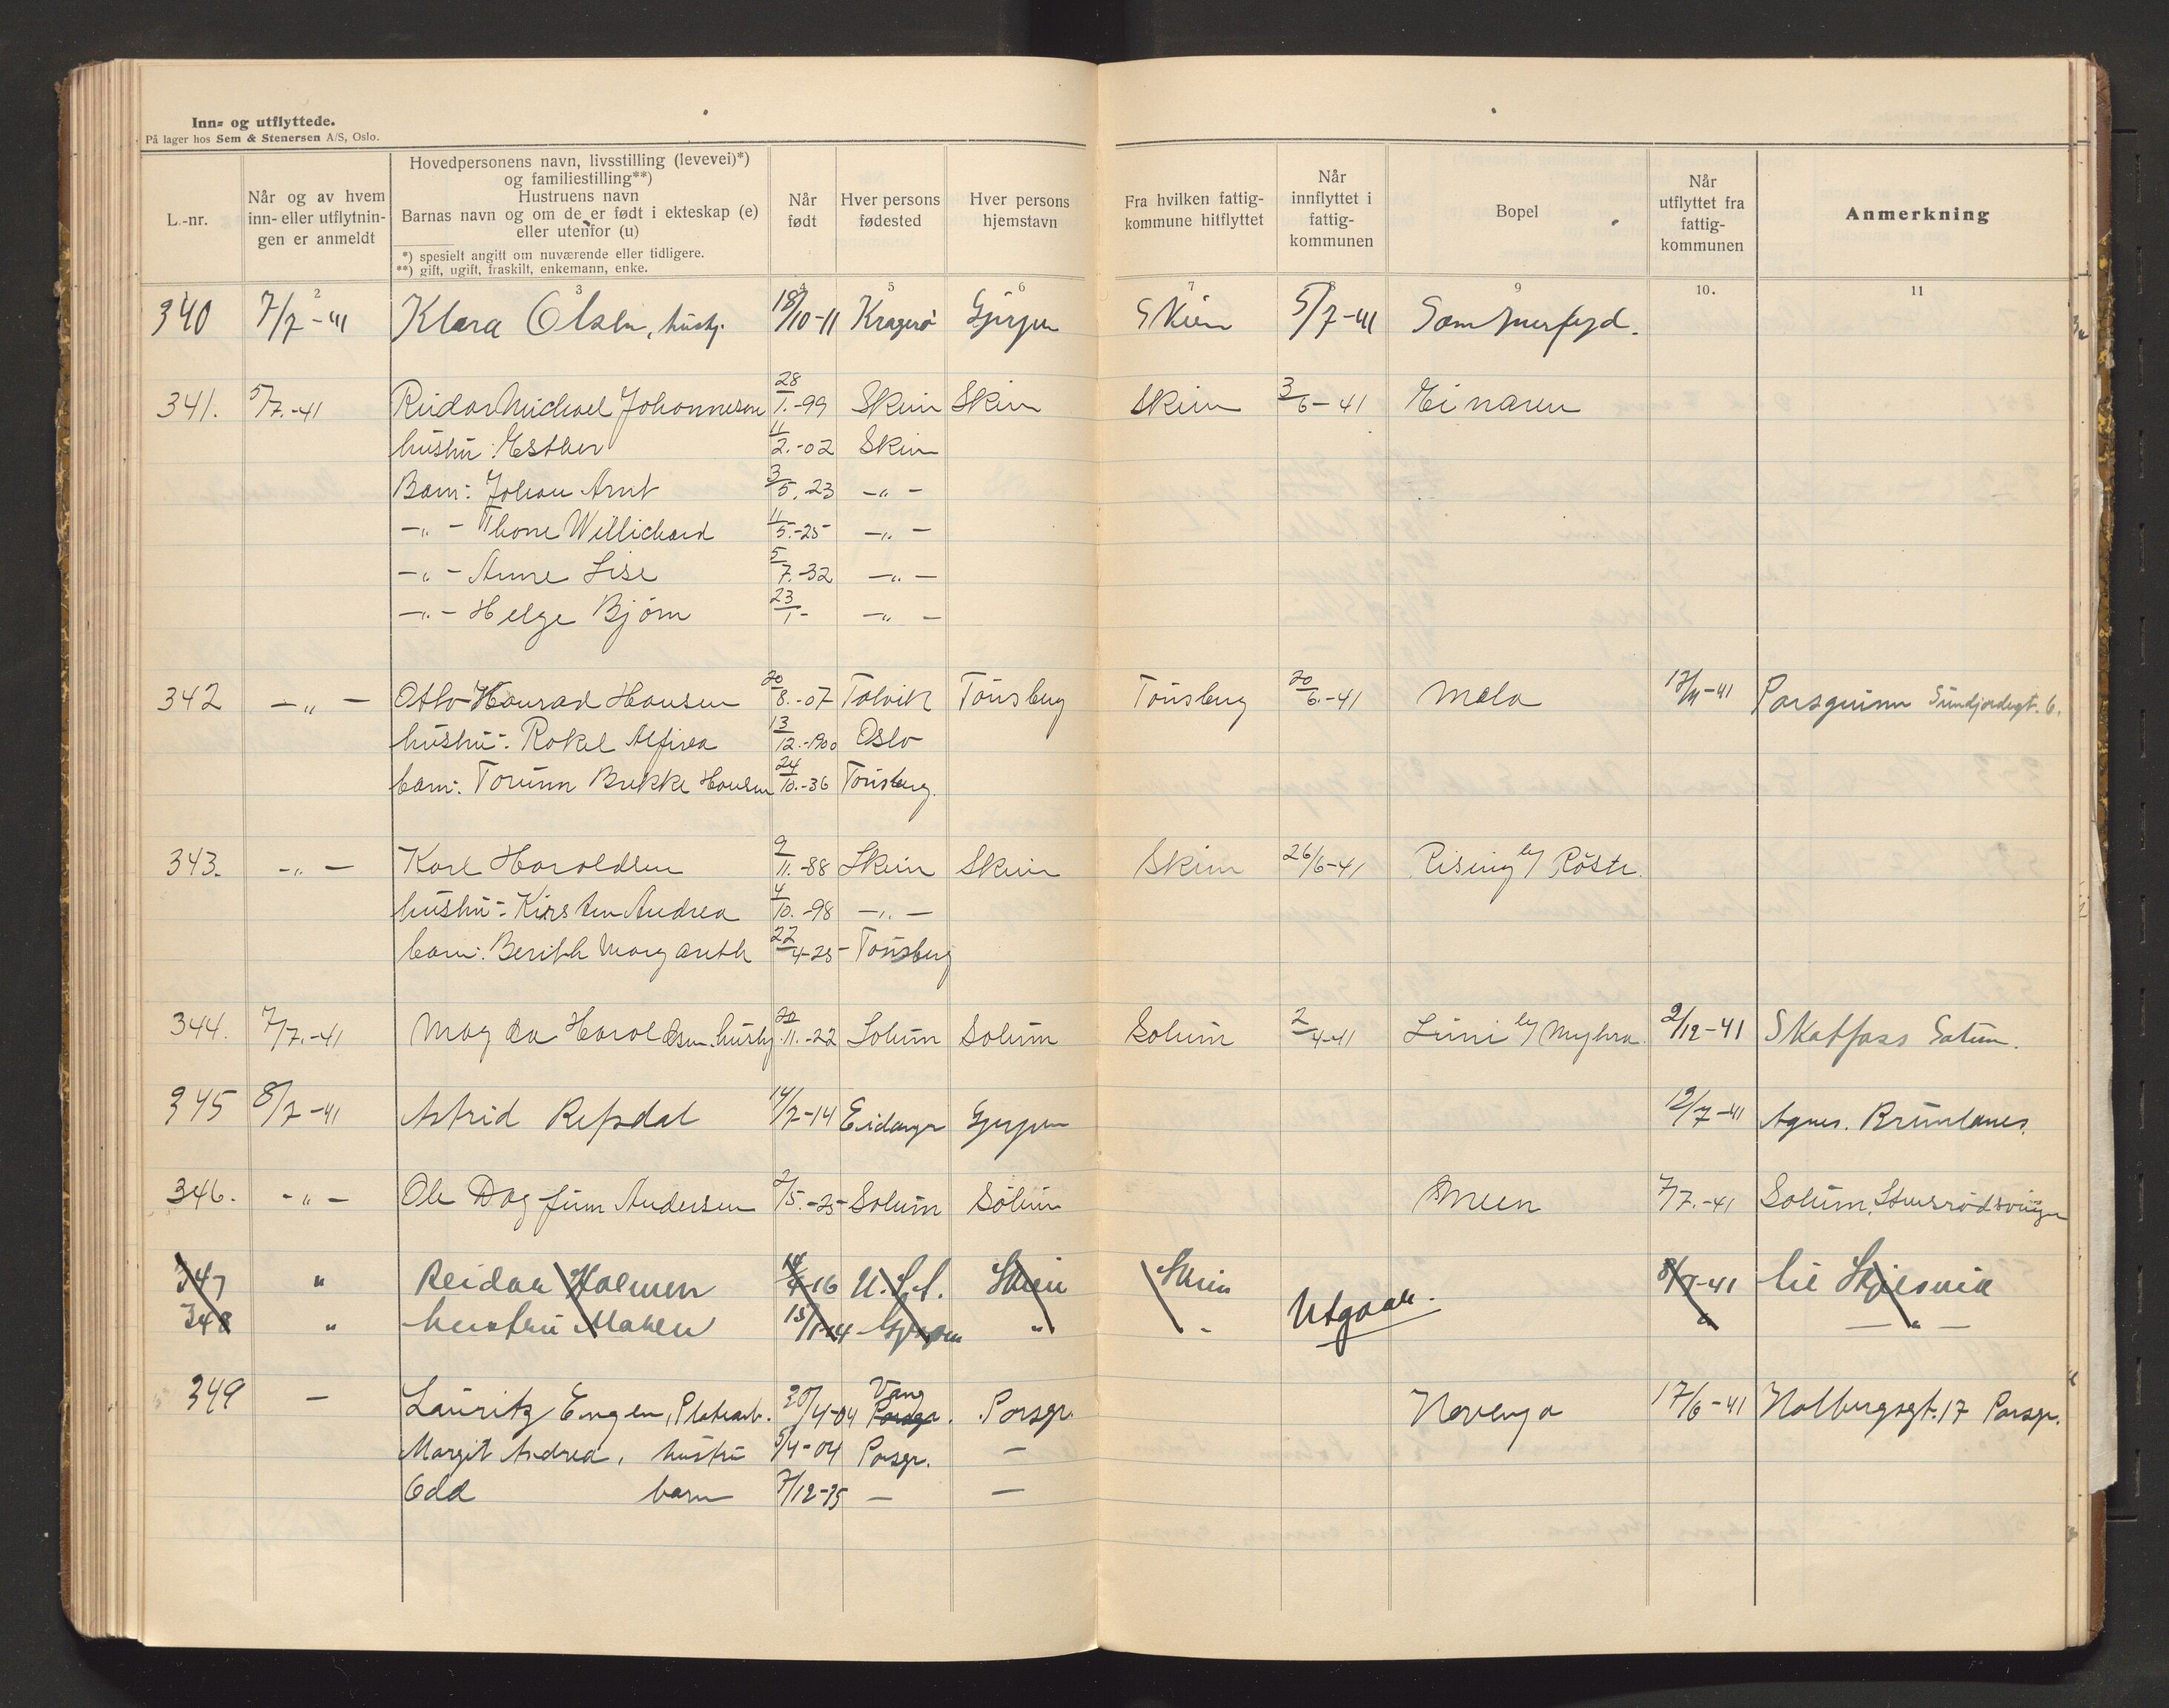 Inn- og utflyttede.
På lager hos Sem & Stenersen A/S, Oslo.
L.-nr.
Når og av hvem inn- eller utflytnin- gen er anmeldt
Hovedpersonens navn, livsstilling (levevei)*)
og familiestilling**)
Hustruens navn
Barnas navn og om de er født i ekteskap (e)
eller utenfor (u)
*) spesielt angitt om nuværende eller tidligere.
**) gift, ugift, fraskilt, enkemann, enke.
Når født
Hver persons fødested
Hver persons hjemstavn
Fra hvilken fattig- kommune hitflyttet
Når innflyttet i fattig- kommunen
Bopel
Når utflyttet fra fattig- kommunen
Anmerkning
2 3 4 5 6 7 8 9 10. 11
340 7/7-41 Klara Olsen, hushj. 18/10-11 Kragerø Gjerpen Skien 5/7-41
341. 5/7.-41 Reidar Michael Johannesen 28/1.-99 Skien Skien Skien 3/6-41 Einaren
hustru: Esther 11/2.-02 Skien
Barn: Johan Arnt 3/5.23 -"-
-"- Thore Willichard 11/5.-25 -"-
-"- Anne Lise 5/7.-32 -"-
-"- Helge Bjørn 23/1- -"-
342 -"- Otto Konrad Hansen 20/8.-07 Talvik Tønsberg Tønsberg 20/6.-41 Mæla 17/11-41 Porsgrunn Sundjordegt. 6.
hustru: Rakel Alfiva 13/12.-1900 Oslo
barn: Torunn Brekke Hansen 24/10.-36 Tønsberg.
343. -"- Karl Haraldsen 9/11.-88 Skien Skien Skien 26/6-41 Rising Røste.
hustru: Kirsten Andrea 4/10.-98 -"-
barn: Berith Margareth 22/4-25 Tønsberg
344. 7/7.-41 Magda Haraldsen. hushj. 20/11.-22 Solum Solum Solum 2/4-41 Luni Myhra. 2/12-41 Skotfoss Solum.
345 8/7-41 Astrid Refsdal 14/7-14 Eidanger Gjerpen 12/7-41 Agnes. Brunlanes.
346. -"- Ole Dagfinn Andersen 2/5.-25 Solum Solum Meen 7/7.-41 Solum,
347 " Reidar Holmen -16 U.S.A. Skien Skien 8/7-41 til Skjelsvik
348 " hustru Maken 15/1-14 Gjerpen " " Utgaar. " -"-
349 - Lauritz Engen, Platearb. 20/4-04 Vang Porsgr. Porsgr. Hovenga 17/6-41 Holbergsgt. 17 Porsgr.
Margit Andrea, hustru 5/4-04 Porsgr. -
Odd barn 7/12-25 - -